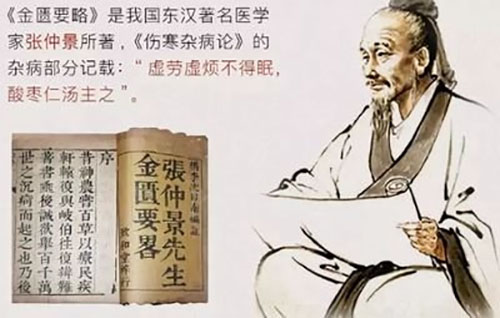 《金匮要略》是我国东汉著名医学
家张仲景所著，《伤寒杂病论》的
杂病部分记载：“虚劳虚烦不得眠，
酸枣仁汤主之”。
張仲景先生
金匱要畧
序
昔神農嘗百草以療民疾
軒轅復與岐伯徃復辯難
著書垂後誠歟舉百千萬
世之沉痾而起之也乃後